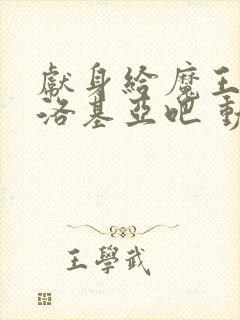 獻身給魔王
洛基亞吧 動
王學武